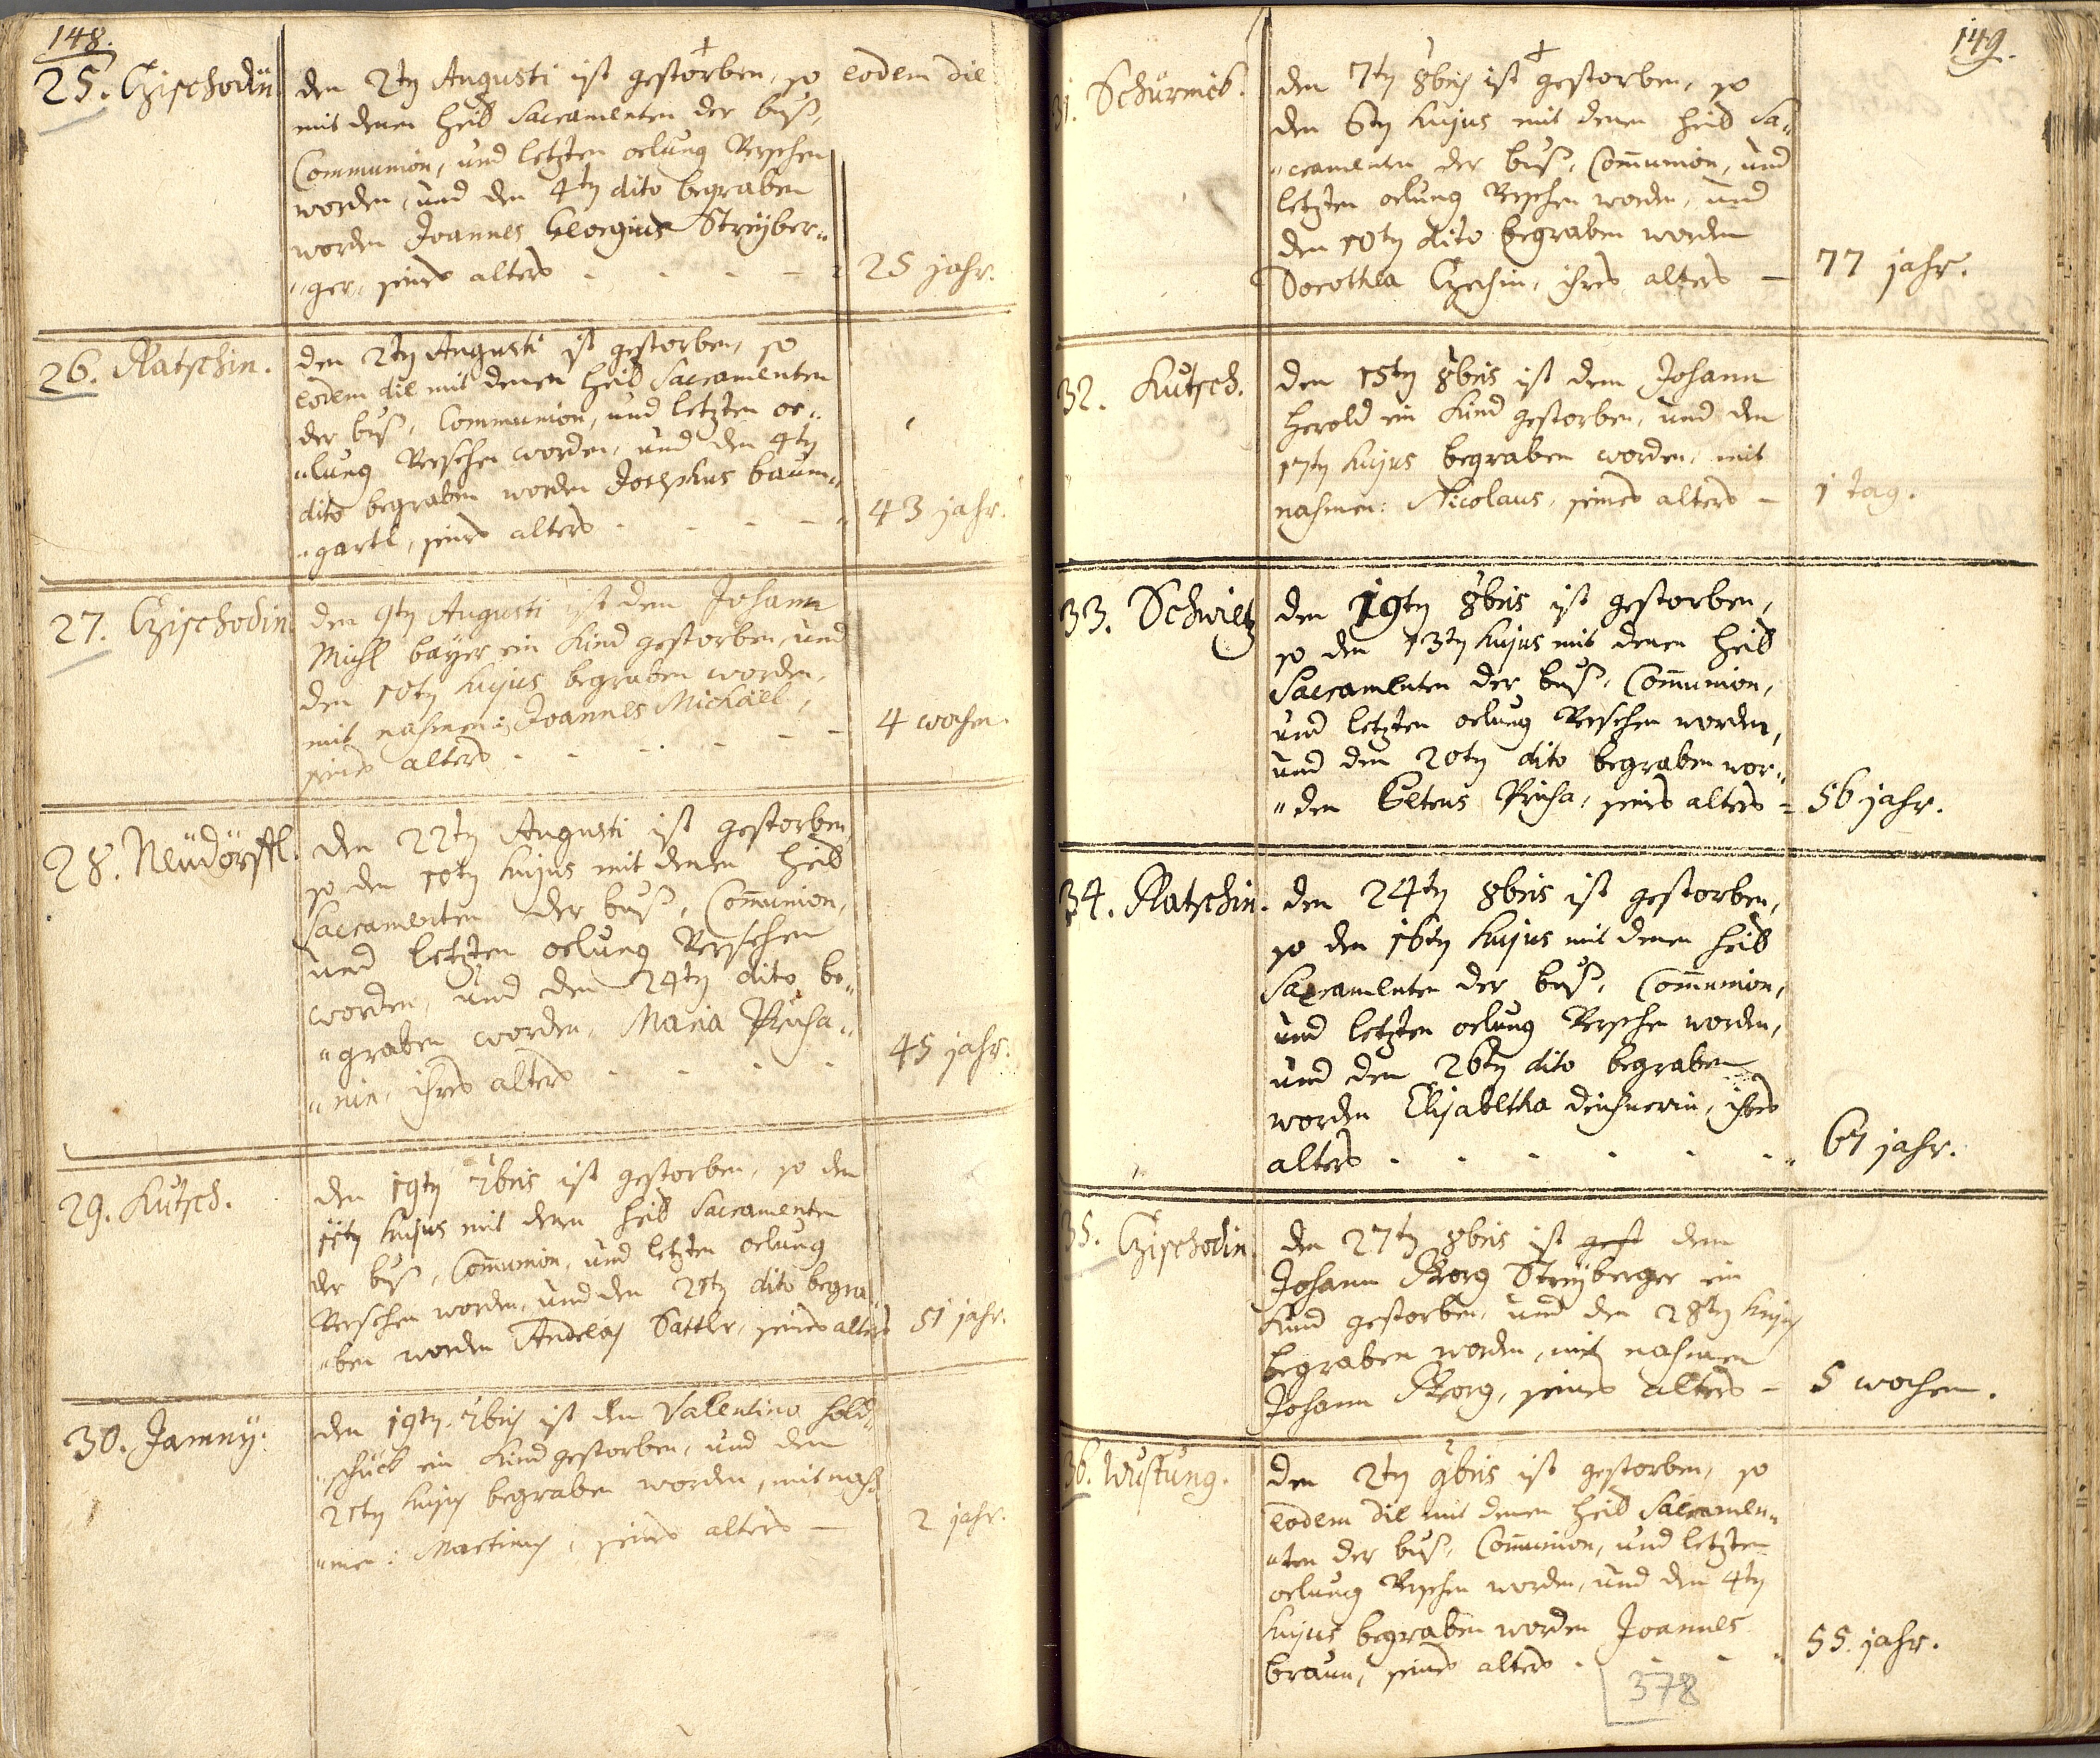 148.
25. Czischodin
den 2ten Augusti ist gestorben, so eodem die
mit denen heil Sacramenten der buß,
Communion, und letzten oelung Versehen
worden, und den 4ten dito begraben
worden Joannes Georgius Streÿber„
„ger, seines alters - - - -
25 jahr.
26. Ratschin.
den 2ten Augusti ist gestorben, so
eodem die mit denen heil Sacramenten
der buß, Communion, und letzten oe„
„lung Versehen worden, und den 4ten
dito begraben worden Josephus baum„
„gartl, seines alters - - - -
43 jahr.
27. Czischodin
den 9ten Augusti ist dem Johann
Michl bayer ein Kind gestorben, und
den 10ten hujus begraben worden,
mit nahmen: Joannes Michäel,
seines alters - - - - - -
4 wochen.
28. Neüdörffl.
den 22ten Augusti ist gestorben,
so den 10ten hujus mit denen heil
Sacramenten der buß, Com̄union,
und letzten oelung Versehen
worden, und den 24ten dito be„
„graben worden, Maria Prucha„
„nin, ihres alters - - - -
45 jahr.
29. Kutsch.
den 19ten 7bris ist gestorben, so den
11ten hujus mit denen heil Sacramenten
der buß, Com̄union, und letzten oelung
Versehen worden, und den 21ten dito begra„
„ben worden Andreas Sattler, seines alters
51 jahr.
30. Jamnÿ.
den 19ten 7bris ist dem Valentino hold„
„schück ein Kind gestorben, und den
21ten hujus begraben worden, mit nah„
„men: Martinus, seines alters —
2 jahr.
149.
31. Schürmeb.
den 7ten 8bris ist gestorben, so
den 6ten hujus mit denen heil Sa„
„cramenten der buß, Com̄union, und
letzten oelung Versehen worden, und
den 10ten dito begraben worden
Dorothea Czechin, ihres alters —
77 jahr.
32. Kutsch.
den 15ten 8bris ist dem Johann
Herold ein Kind gestorben, und den
17ten hujus begraben worden, mit
nahmen: Nicolaus, seines alters —
1 tag.
33. Schwietz
den 19ten 8bris ist gestorben,
so den 13ten hujus mit denen heil
Sacramenten der buß, Com̄union,
und letzten oelung Versehen worden,
und den 20ten dito begraben wor„
„den Prucha, seines alters -
56 jahr.
34. Ratschin.
den 24ten 8bris ist gestorben,
so den 16ten hujus mit denen heil
Sacramenten der buß, Com̄union,
und letzten oelung Versehen worden,
und den 26ten dito begraben
worden Elisabetha dirschnerin, ihres
alters - - - - - -
61 jahr.
35. Czischodin
den 27ten 8bris ist gest dem
Johann Georg Streÿberger ein
Kind gestorben, und den 28ten hujus
begraben worden, mit nahmen
Johann Georg, seines alters -
5 wochen.
36. Wustung.
den 2ten 9bris ist gestorben, so
eodem die mit denen heil Sacramen„
„ten der buß, Com̄union, und letzten
oelung Versehen worden, und den 4ten
hujus begraben worden Joannes
braun, seines alters - - - -
55. jahr.
378